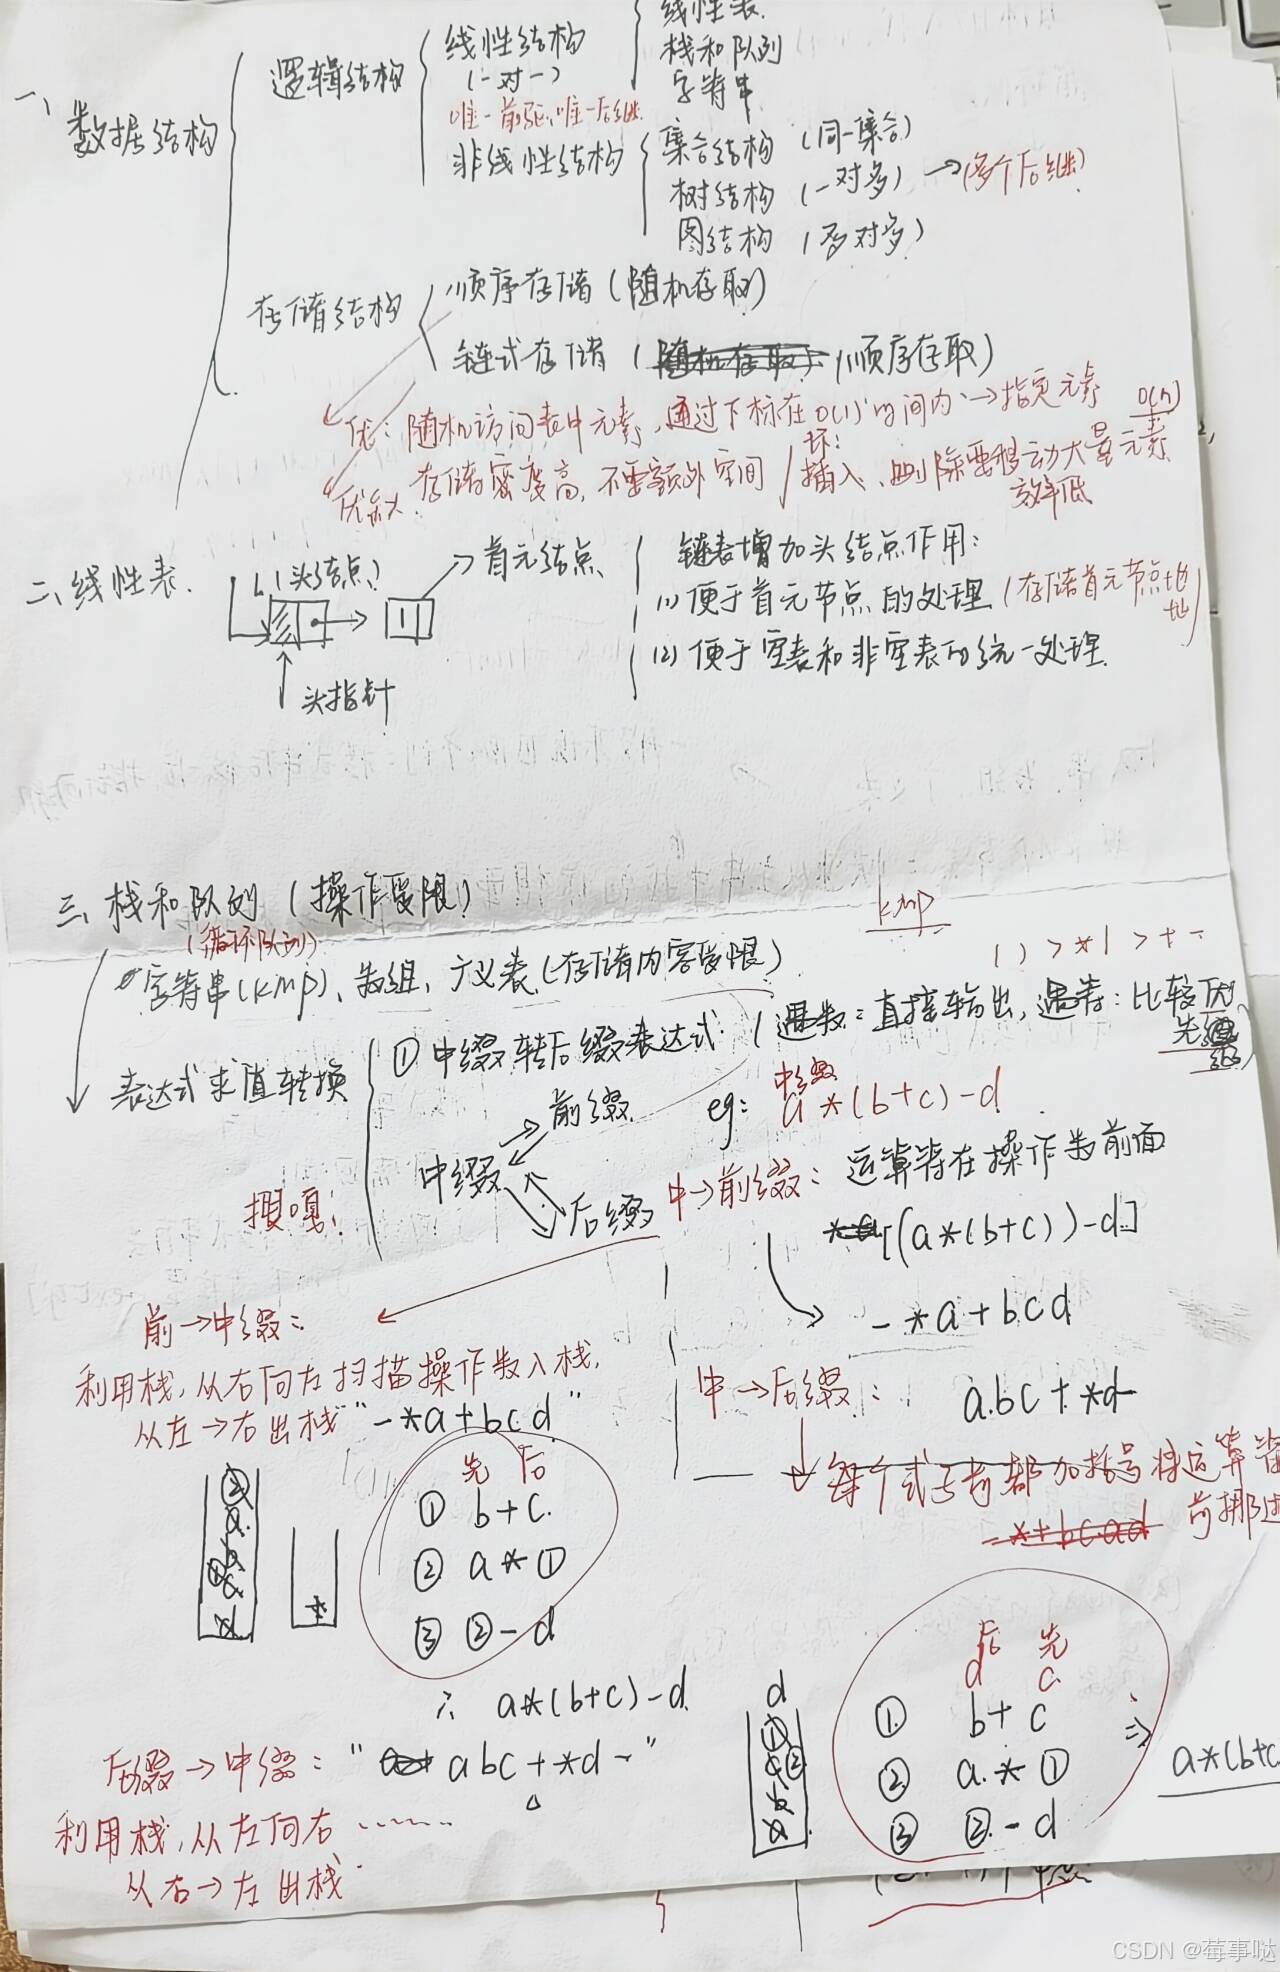 一、数据结构
逻辑结构
线性结构
(一对一)
唯一前驱、唯一后继
线性表.
栈和队列
字符串
非线性结构
集合结构 (同一集合)
树结构 (一对多) → (多个后继)
图结构 (多对多)
存储结构
顺序存储 (随机存取)
链式存储 (随机存取) (顺序存取)
优: 随机访问表中元素, 通过下标在O(1)时间内 → 指定元素
存储密度高, 不需额外空间
坏: O(n)
插入、删除要移动大量元素
效率低
二、线性表.
L (头结点)
→ 首元结点
头指针
链表增加头结点作用:
(1) 便于首元节点的处理 (存储首元节点地
址)
(2) 便于空表和非空表的统一处理.
三、栈和队列 (操作受限)
(循环队列)
字符串(kmp)、数组、广义表(存储内容受限)
kmp
( ) > * / > + -
表达式求值转换
① 中缀转后缀表达式 (遇数: 直接输出, 遇符: 比较优
先级)
前缀
中缀
后缀
摆嘎!
中缀
eg: a*(b+c)-d
中→前缀: 运算符在操作数前面
[(a*(b+c))-d]
-*a+bcd
中→后缀: abc+*d-
每个式子前都加括号将运算符
-*+bcad
前→中缀:
利用栈, 从右向左扫描操作数入栈,
从左→右出栈 "-*a+bcd"
先 后
① b+c.
② a*①
③ ②-d
∴ a*(b+c)-d.
后缀→中缀: " abc+*d-"
利用栈, 从左向右 ……
从右→左出栈
后 先
d c
① b+c
② a.*①
③ ②-d
⇒ a*(b+c
CSDN @莓事哒